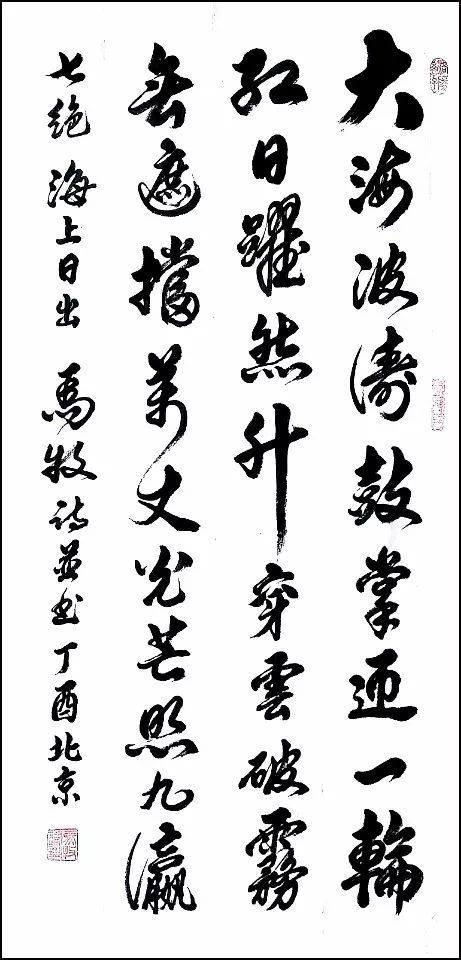 大海波涛鼓掌迎一輪
红日躍然升穿雲破霧
無遮擋萬丈光芒照九瀛
七絶 海上日出 馬牧诗並书丁酉北京